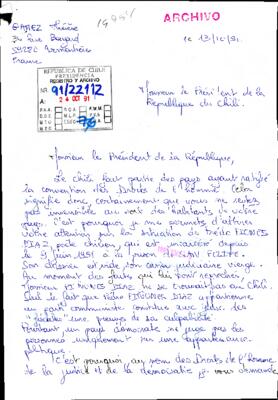 ARCHIVO
GAREZ
34 Rue
59280 Armentières
France
le 13/10/91.
REPUBLICA DE CHILE
PRESIDENCIA
REGISTRO Y ARCHIVO
NR. 91/22112
A: 24 OCT 91
P.A.A. R.C.A.
M.L.P.
M.T.O.
M.Z.C.
Monsieur le Président de la
République du Chili.
Monsieur le Président de la République,
Le Chili fait partie des pays ayant ratifié
la convention des Droits de l'homme. Cela
signifie donc certainement que vous ne restez
pas insensible au sort des habitants de votre
pays. C'est pourquoi je me permets d'attirer
votre attention sur la situation de
DIAZ, poète chilien, qui est incarcéré depuis
le 9 juin 1991 à la prison de SAN FELIPE.
Son défenseur est vide, son casier judiciaire vierge.
Au moment des faits qui lui sont reprochés
Monsieur DIAZ ne se trouvait pas au Chili.
Seul le fait que DIAZ appartienne
au parti communiste constitue aux yeux des
une preuve de sa culpabilité.
Pourtant un pays démocrate ne juge pas les
personnes uniquement sur une appartenance
politique.
C'est pourquoi au nom des Droits de l'Homme
de la justice et de la démocratie je vous demande